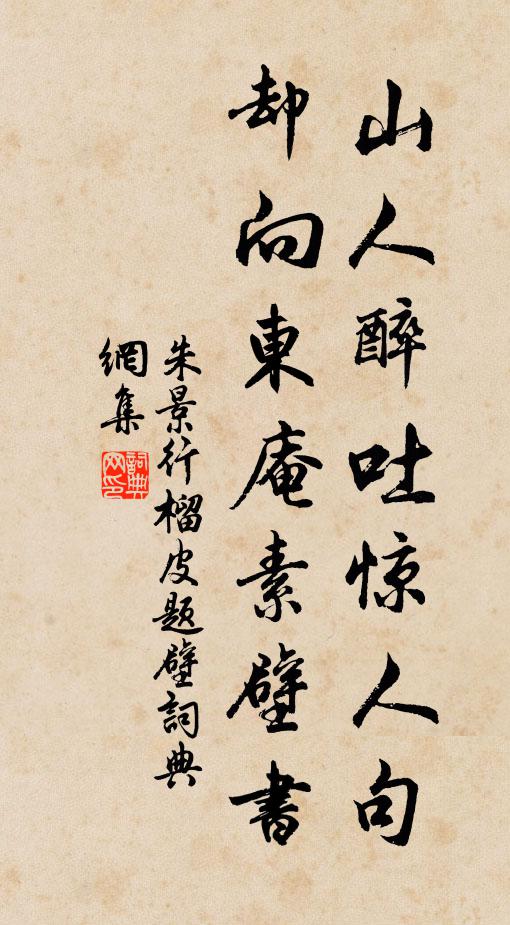 山人醉吐惊人句
却向東庵素壁書
朱景行榴皮题壁詞典
網集
詞典
网印